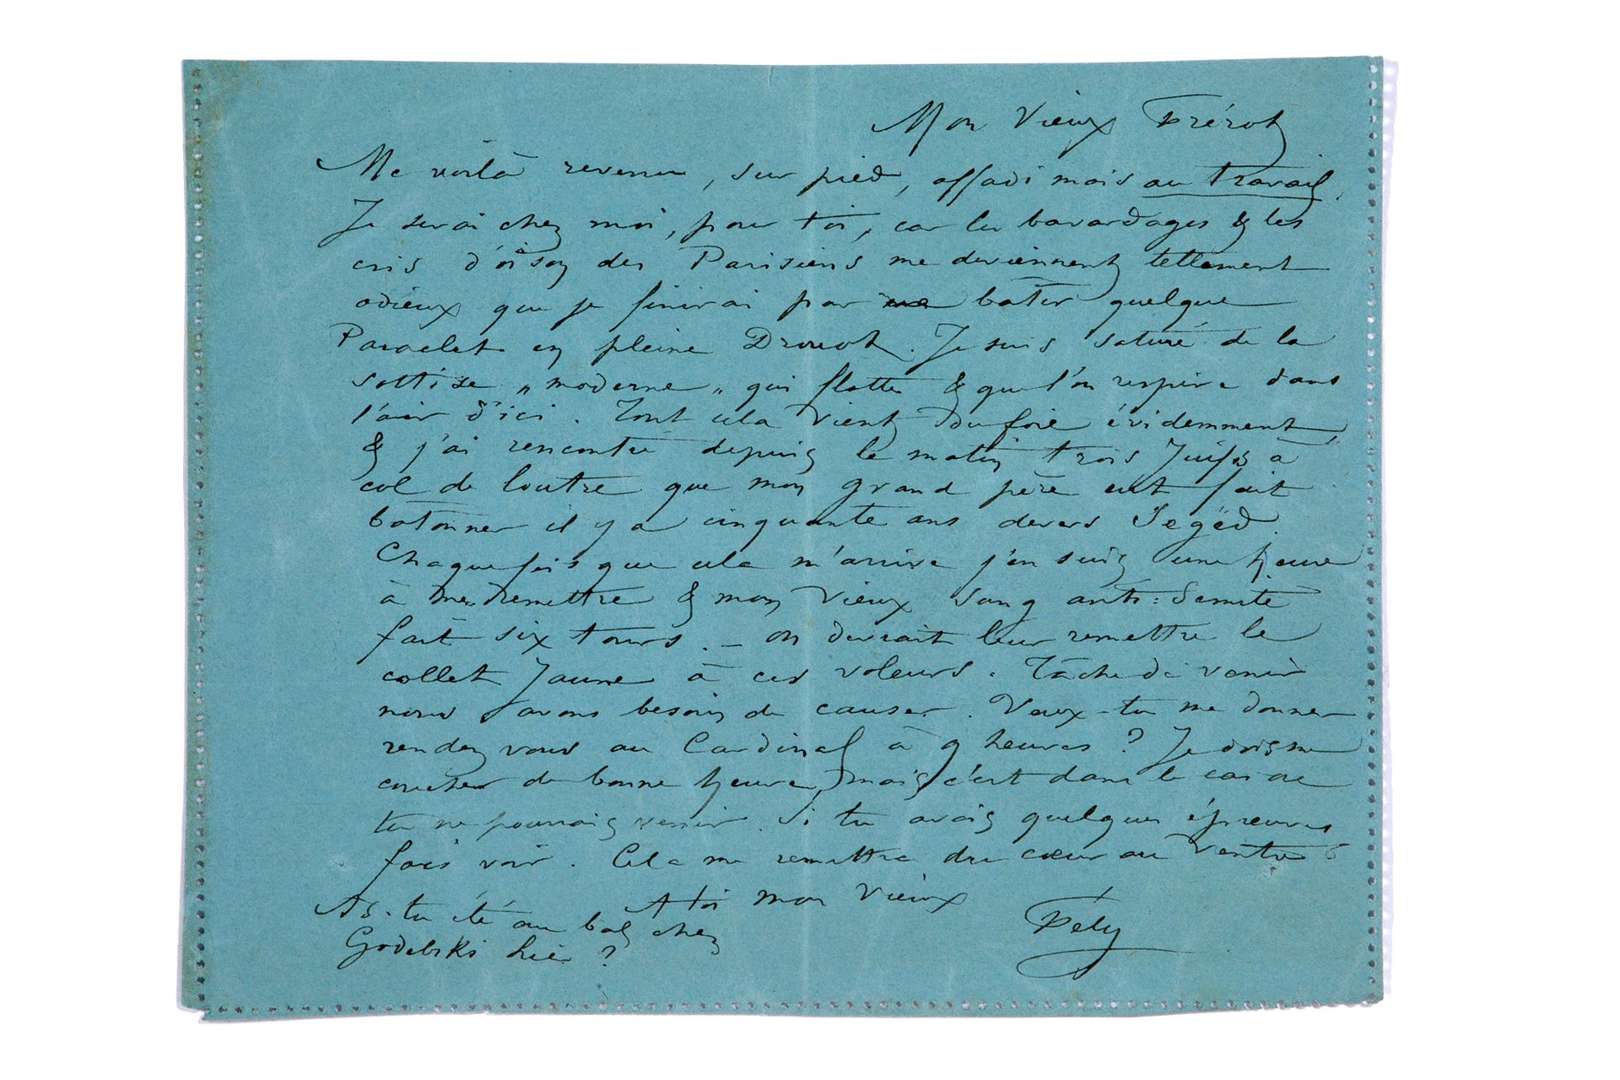 Mon Vieux Frérot
Me voilà revenu, sur pied, affadi mais au travail.
Je serai chez moi, pour toi, car les bavardages & les
cris d'oison des Parisiens me deviennent tellement
odieux que je finirai par bâtir quelque
Paraclet en pleine Drouot. Je suis saturé de la
sottise "moderne" qui flotte & que l'on respire dans
l'air d'ici. Tout cela vient du foie évidemment,
& j'ai rencontré depuis le matin trois Juifs à
col de loutre que mon grand père eut fait
batonner il y a cinquante ans devers Segëd.
Chaque fois que cela m'arrive j'en suis une heure
à me remettre & mon vieux sang anti-Semite
fait six tours. — On devrait leur remettre le
collet Jaune à ces voleurs. Tâche de venir
nous avons besoin de causer. Veux-tu me donner
rendez vous au Cardinal à 9 heures ? Je dois me
coucher de bonne heure, mais c'est dans le cas où
tu ne pourrais venir. Si tu avais quelques épreuves
fais voir. Cela me remettra du cœur au ventre
A toi mon vieux
Fély
As-tu été au bal chez
Godebski hier ?